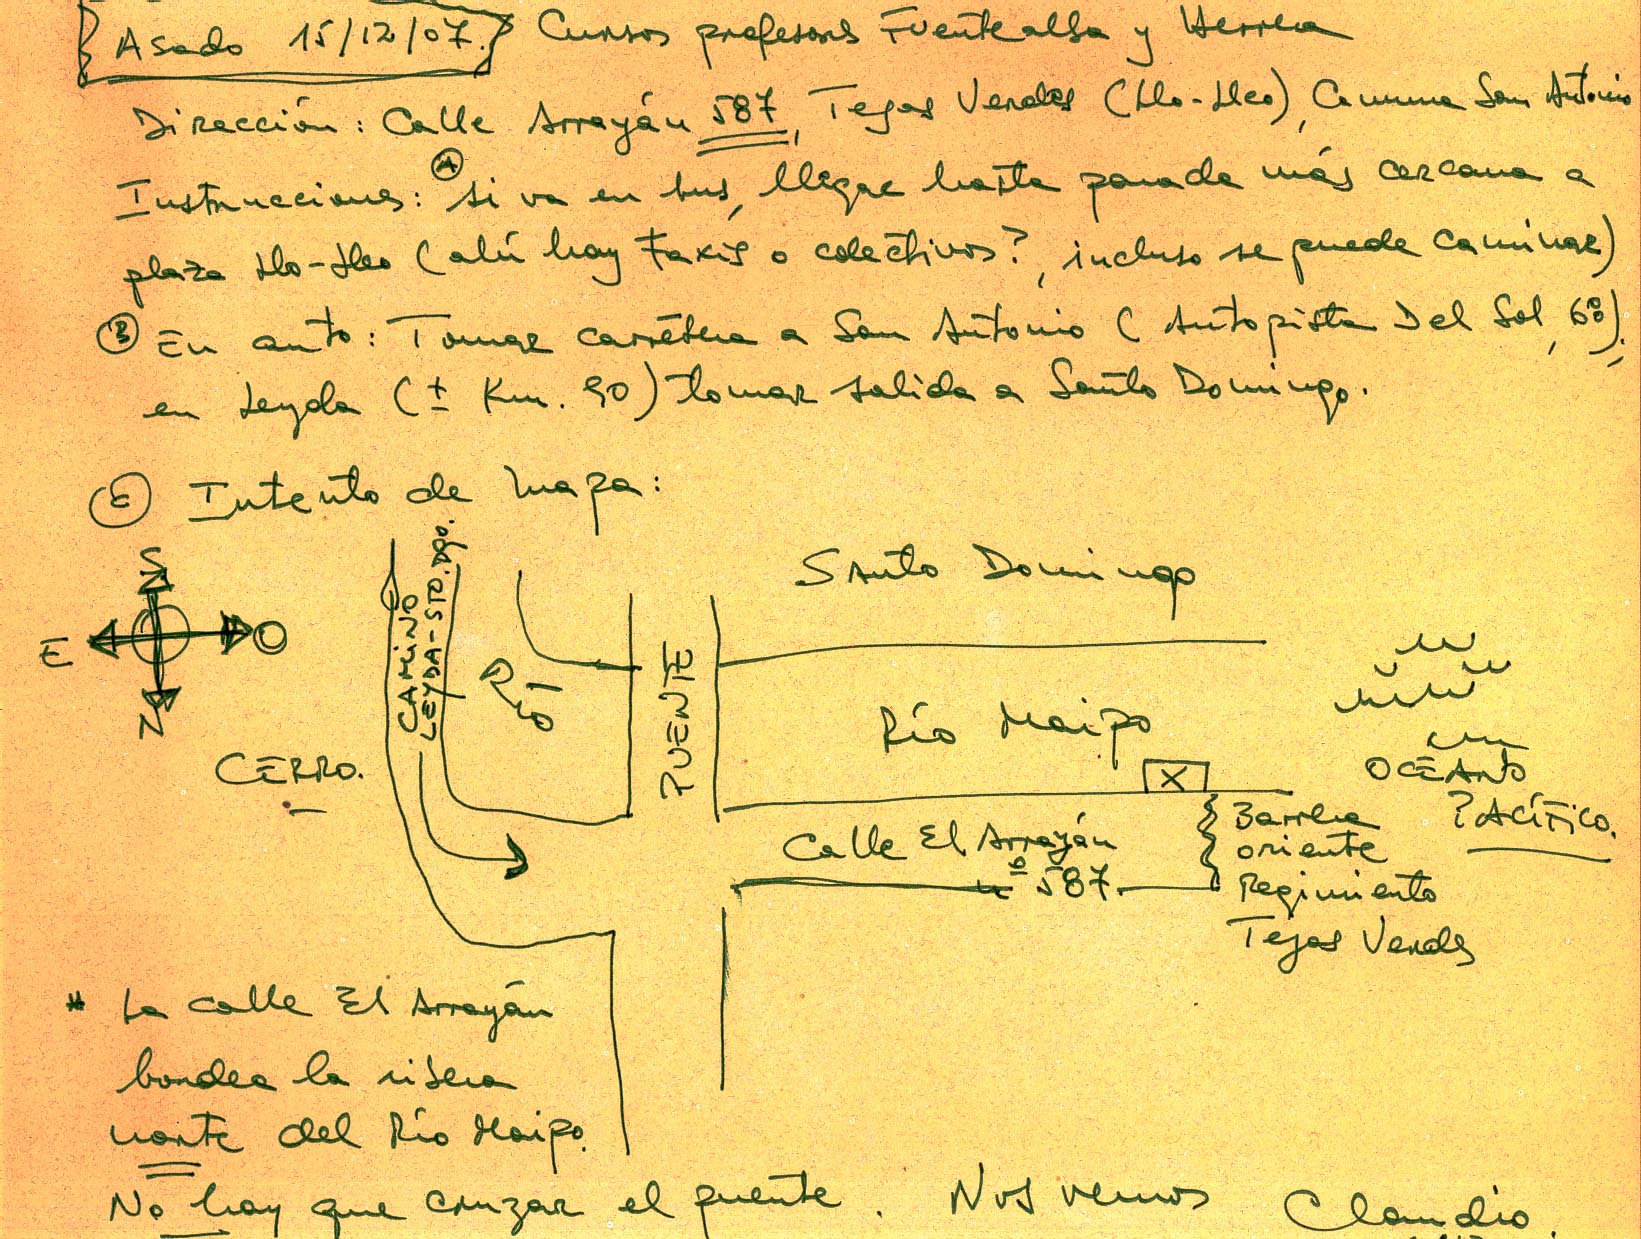 Asado 15/12/07. Cursos profesores Fuentealba y Herrera
Dirección: Calle Arrayán 587, Tejas Verdes (Llo-Lleo), Comuna San Antonio
Instrucciones: (A) si va en bus, llegar hasta parada más cercana a
plaza Llo-Lleo (ahí hay taxis o colectivos?, incluso se puede caminar)
(B) En auto: Tomar carretera a San Antonio (Autopista Del Sol,
en Leyda (± Km. 90) tomar salida a Santo Domingo.
(C) Intento de mapa:
S
E
O
N
CERRO.
CAMINO
LEYDA-STO. DGO.
RÍO
PUENTE
Santo Domingo
Río Maipo
X
OCÉANO
PACÍFICO.
Calle El Arrayán
nº 587.
Barrera
oriente
Regimiento
Tejas Verdes
* La calle El Arrayán
bordea la ribera
norte del Río Maipo.
No hay que cruzar el puente. Nos vemos
Claudio.